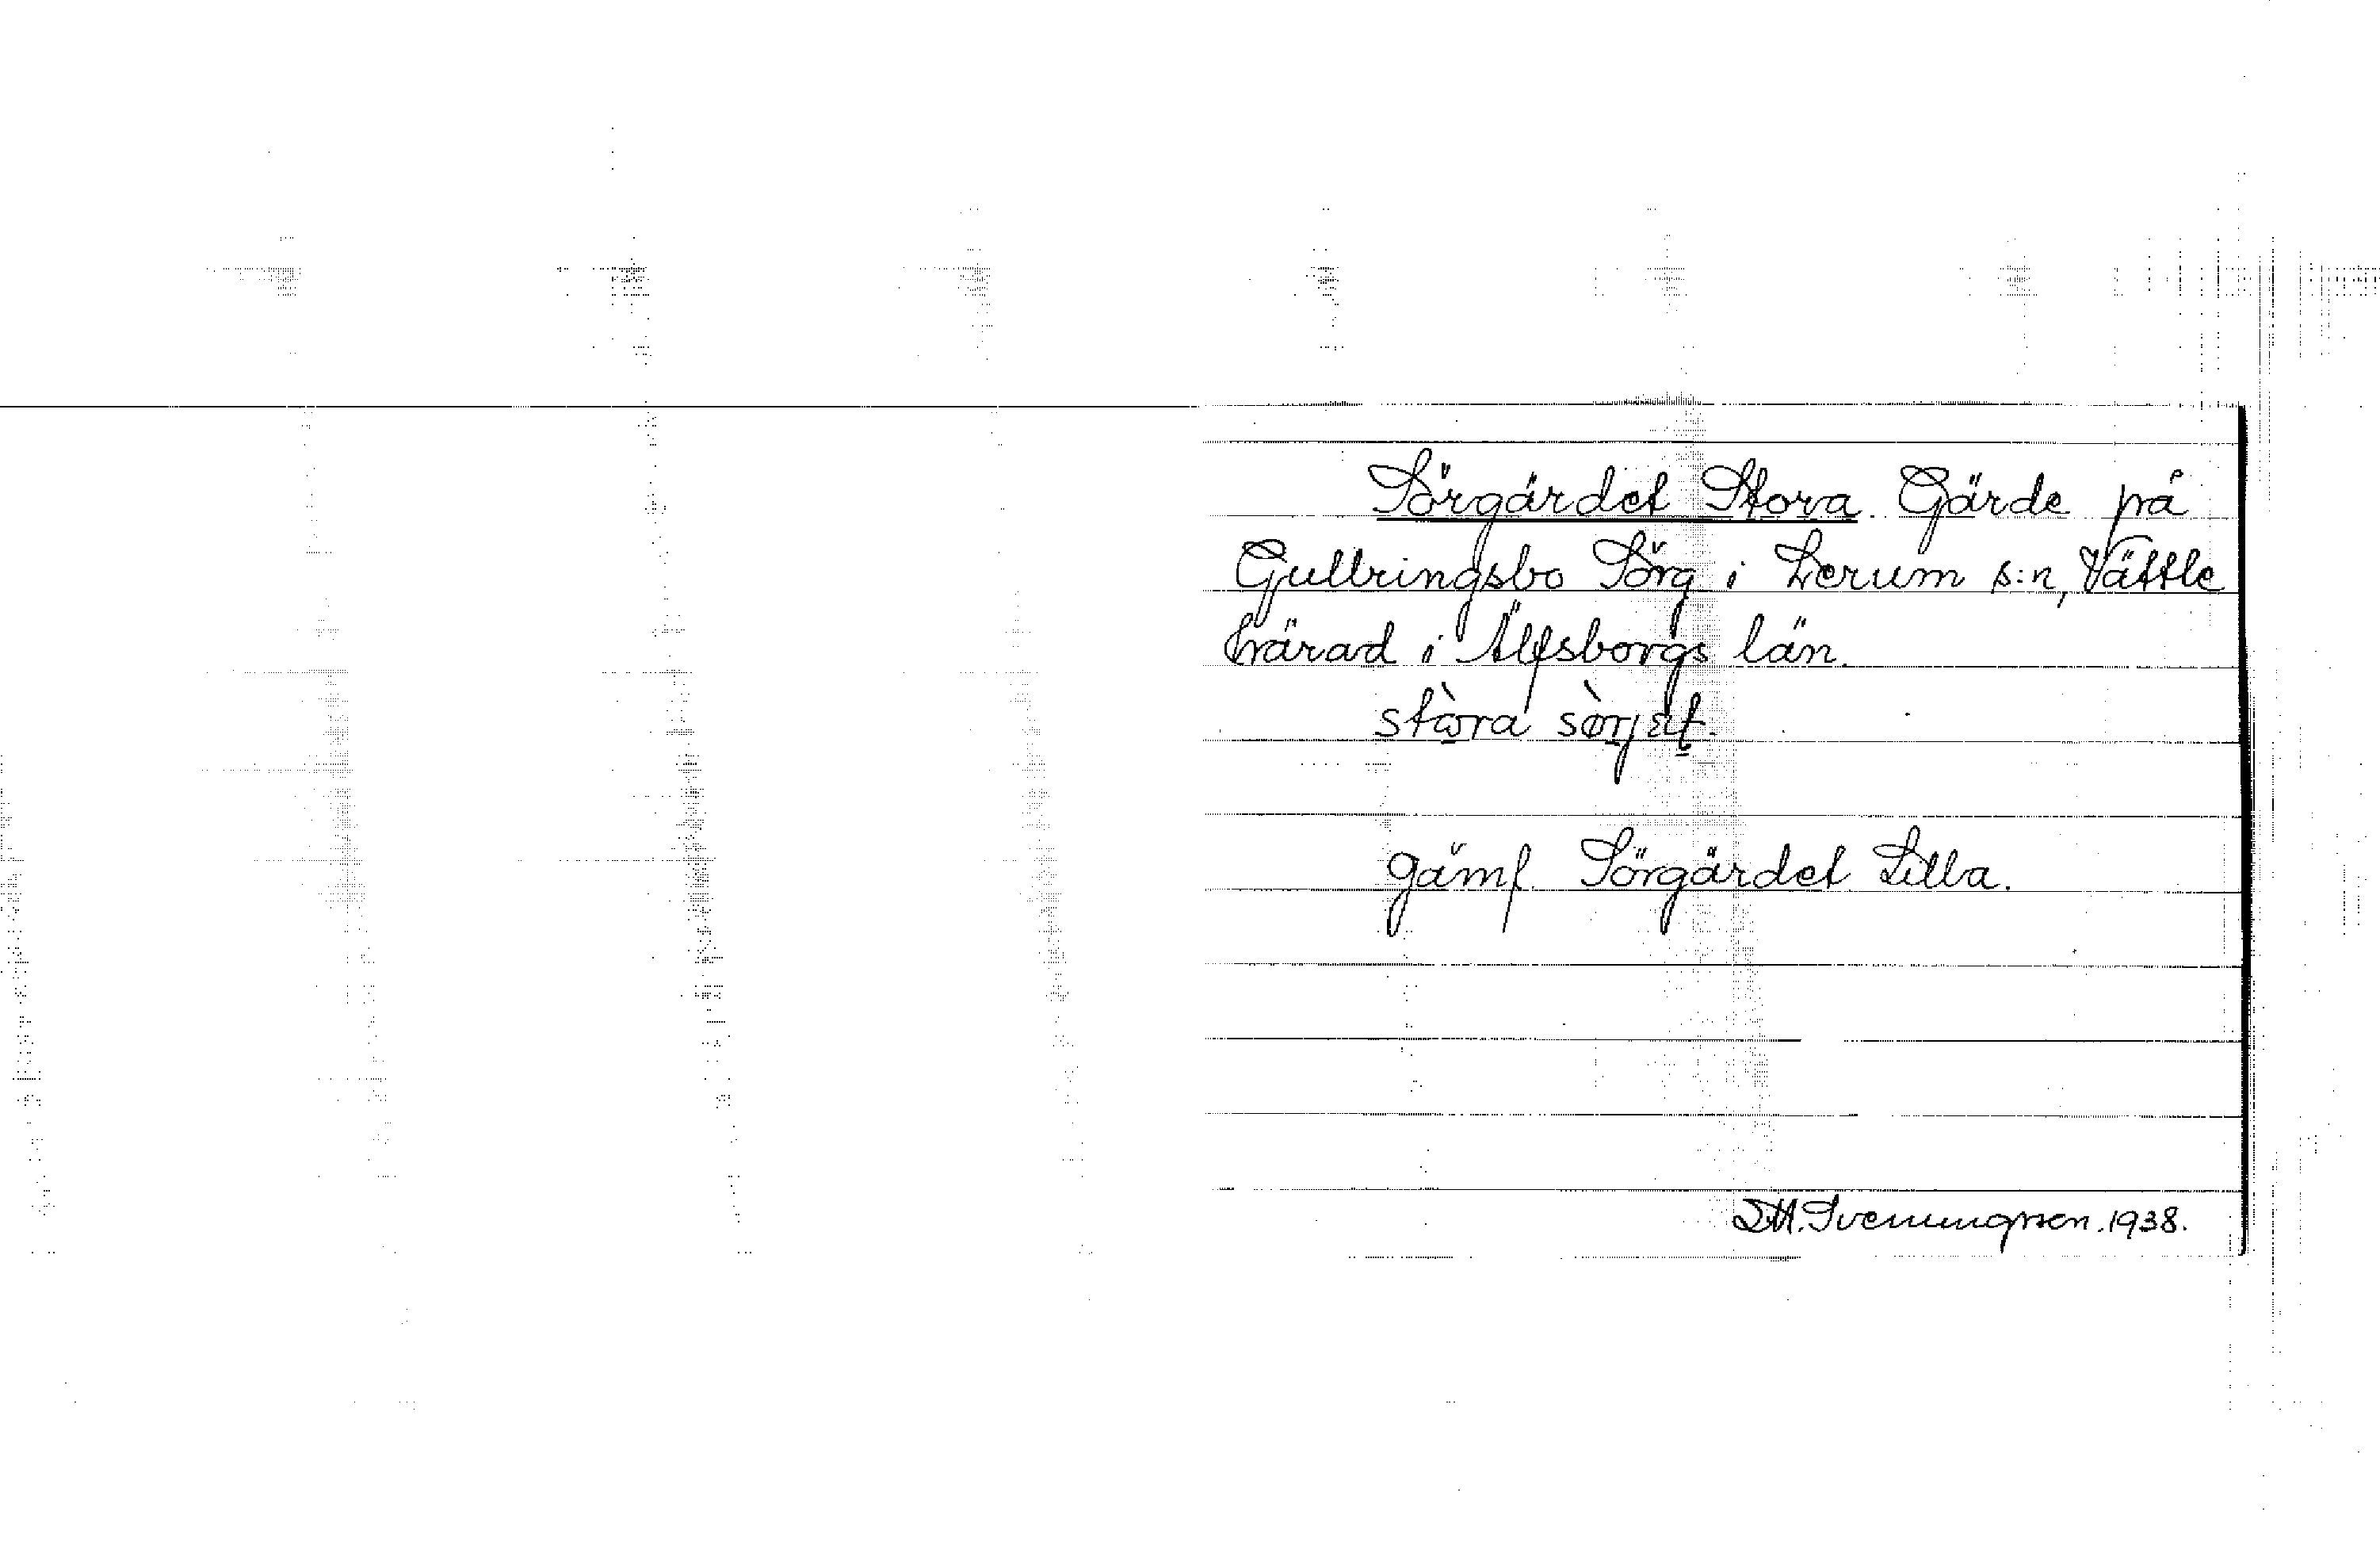 Sörgärdet Stora. Gärde på
Gullringsbo Sörg i Lerum s:n, Vättle
härad i Älfsborgs län.
stòra sòrjæt.
Jämf. Sörgärdet Lilla.
D.M. Sveningsson. 1938.